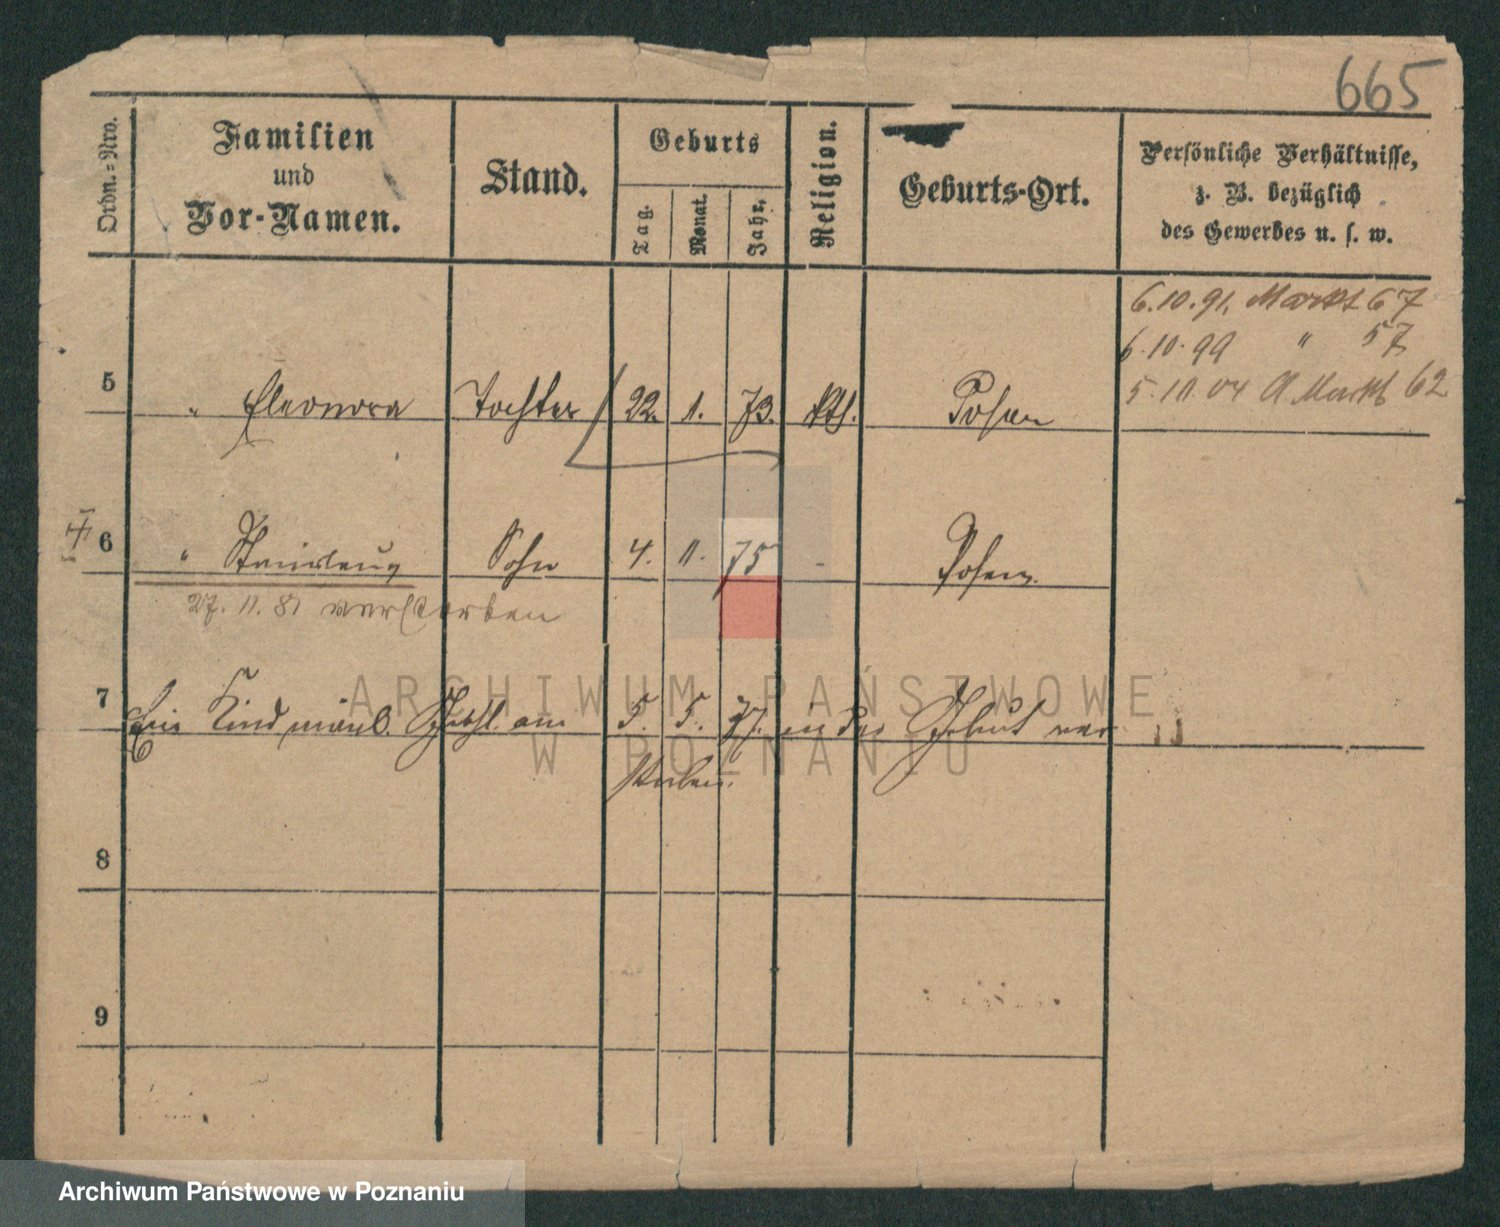 665
Ordn.=Nro.
Familien
und
Vor-Namen.
Stand.
Geburts
Tag.
Monat.
Jahr.
Religion.
Geburts-Ort.
Persönliche Verhältnisse,
z. B. bezüglich
des Gewerbes u. s. w.
6.10.91. Markt 67
6.10.99 " 57
5.10.04 A. Markt 62
5 " Eleonora Tochter 22. 1. 73. kth. Posen
6 " Stanislaus Sohn 4. 11. 75 - Posen.
27. 11. 81 verstorben
7 Ein Kind männl. Geschl. am 5. 5. 77. in der Geburt ver
storben.
8
9
ARCHIWUM PAŃSTWOWE
W POZNANIU
Archiwum Państwowe w Poznaniu